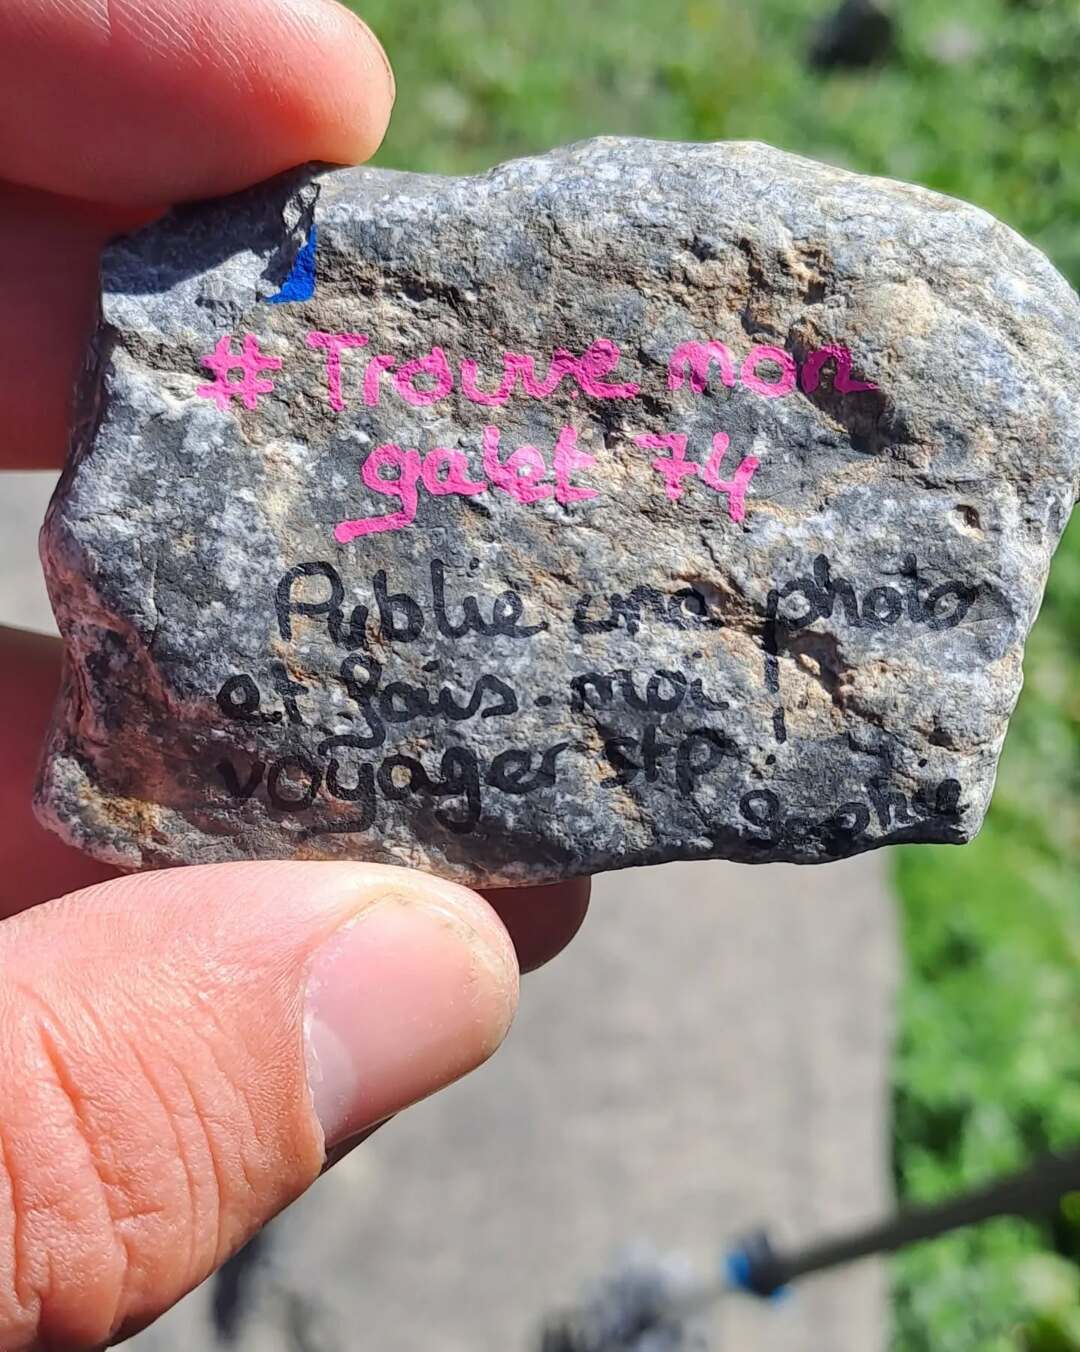 # Trouve mon
galet 74
Publie une photo
et fais-moi
voyager stp !
Sophie